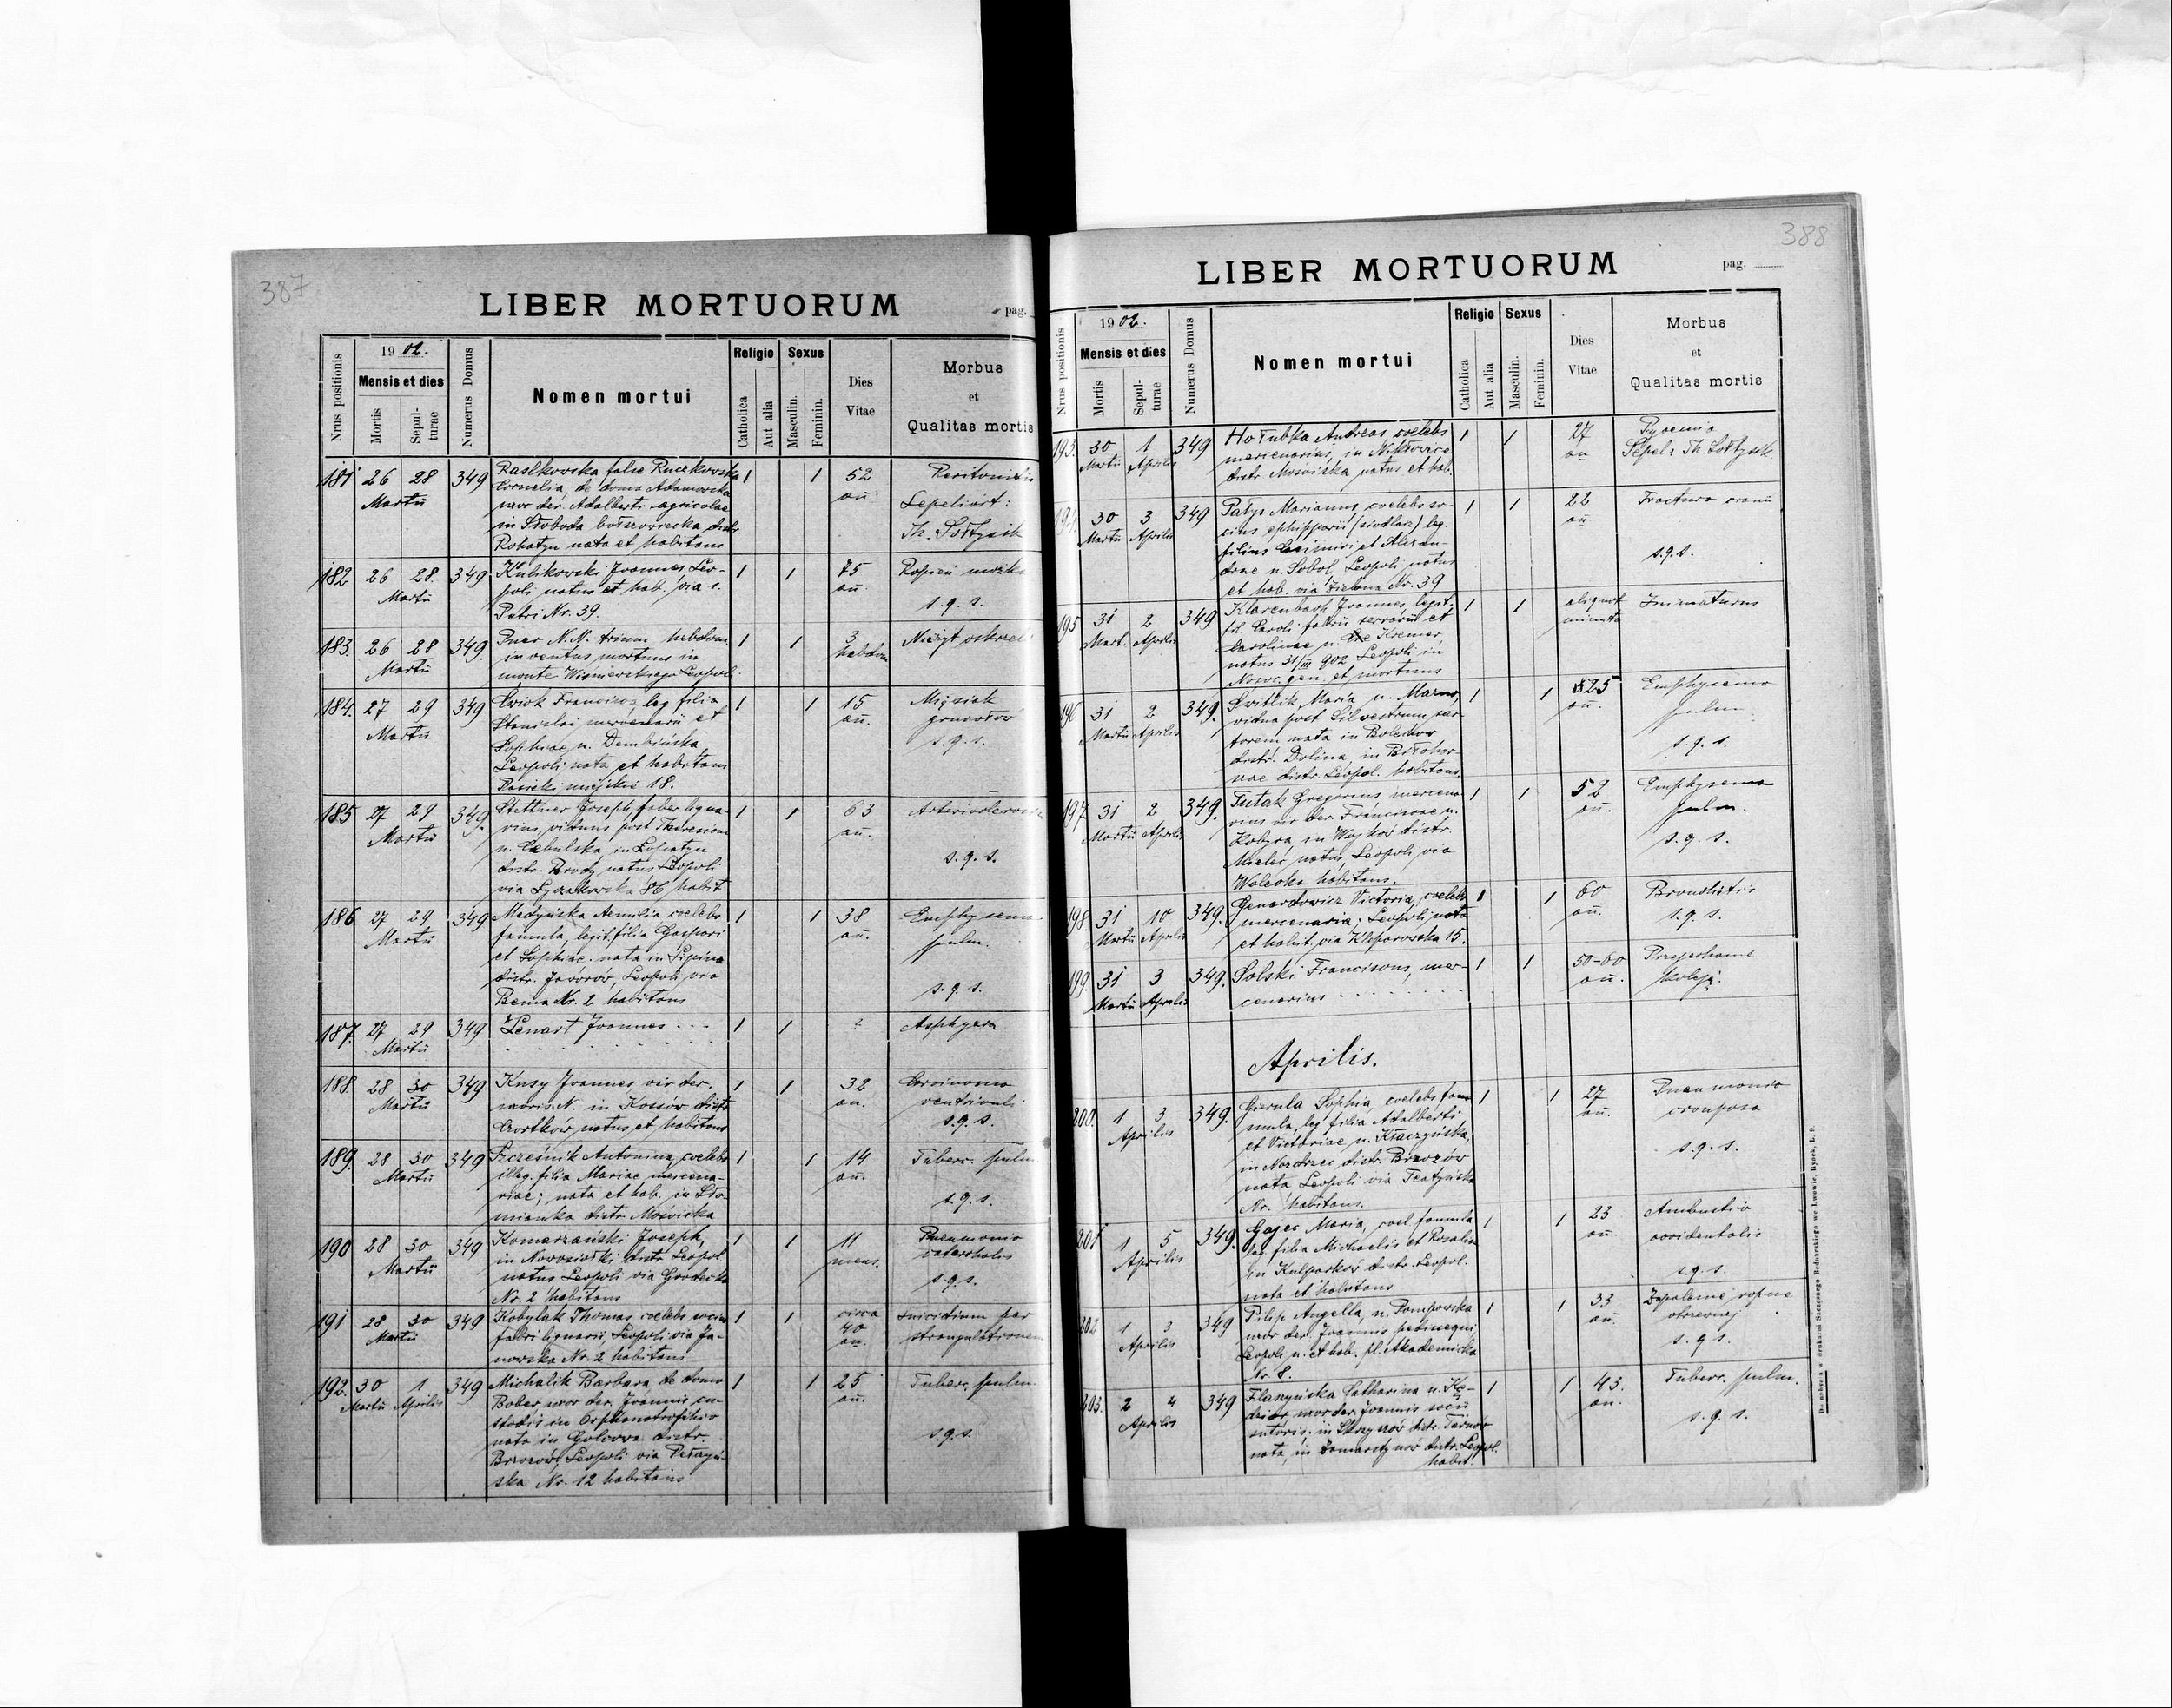 387
LIBER MORTUORUM
pag.
Nrus positionis
19 02.
Mensis et dies
Mortis
Sepul-
turae
Numerus Domus
Nomen mortui
Religio
Catholica
Aut alia
Sexus
Masculin.
Feminin.
Dies
Vitae
Morbus
et
Qualitas mortis
181 26 28 349 1 1 52
Martii
an̄
Cornelia, de domo Adamowska
uxor der. Adalberti agricolae
in Słoboda bołszowiecka distr.
Rohatyn nata et habitans
Peritonitis
Sepelivit:
Th. Sołtysik
182 26 28. 349 Kulikowski Joannes Leo- 1 1 75
Martii
an̄
poli natus et hab. via s.
Petri Nr. 39.
s. q. s.
183. 26 28 349. Puer N. N. trium hebdom. 1 1 3
Martii
hebdom
inventus mortuus in
monte Wiśniewskiego Leopoli.
Nieżyt oskrzeli
184. 27 29 349 Francisca leg. filia 1 1 15
Martii
an̄.
Stanislai mercenarii et
Sophiae n. Dembińska
Leopoli nata et habitans
Pasieki miejskie 18.
s. q. s.
185 27 29 349. Stettner Joseph, faber ligna- 1 1 63
Martii
an̄.
rius, viduus post Theresiam
n. Cebulska, in Łopatyn
distr. Brody natus Leopoli
via Łyczakowska 86 habit
s. q. s.
186 27 29 349 Madyńska Aemilia coelebs 1 1 38
Martii
an̄.
famula, legit. filia Gaspari
et Sophiae nata in Lipina
distr. Jaworów, Leopoli via
Bema Nr. 2 habitans
Emphysema
pulm.
s. q. s.
187. 27 29 349 Lenart Joannes 1 1 ?
Martii
Asphyxia
188. 28 30 349 Kusy Joannes vir der. 1 1 32
Martii
an.
uxoris N. in Kossów distr
Czortkow natus et habitans
Carcinoma
ventriculi
s. q. s.
189. 28 30 349 Szcześnik Antonina, coelebs 1 1 14
Martii
an̄.
illeg. filia Mariae mercena-
riae; nata et hab. in Sło-
mianka distr. Mościska
Tuberc. pulm.
s. q. s.
190 28 30 349 Komarzański Joseph, 1 1 11
Martii
mens.
in Nowosiołki distr. Leopol
natus Leopoli via Grodecka
Nr. 2 habitans
Pneumonia
catarrhalis
s. q. s.
191 28 30 349 Kobylak Thomas coelebs socius 1 1 circa
40
Martii
an.
fabri lignarii, Leopoli via Ja-
nowska Nr. 2 habitans
Suicidium per
strangulationem
192. 30 1 349 Michalik Barbara, de domo 1 1 25
Martii Aprilis
an̄.
Bober, uxor der. Joannis cu-
stodis in Orphanotrophio
nata in Golcowa distr.
Brzozów, Leopoli via
Nr. 12 habitans
Tuberc. pulm.
s. q. s.
388
LIBER MORTUORUM
pag.
Nrus positionis
19 02.
Mensis et dies
Mortis
Sepul-
turae
Numerus Domus
Nomen mortui
Religio
Catholica
Aut alia
Sexus
Masculin.
Feminin.
Dies
Vitae
Morbus
et
Qualitas mortis
193. 30 1 349 Hołubka Andreas, coelebs 1 1 27
Martii Aprilis
an
mercenarius, in
distr. Mościska natus et hab.
Pyaemia
Sepel: Th. Sołtysik.
194. 30 3 349 Marianus, coelebs so- 1 1 22
Martii Aprilis
an̄
cius ephipparii (siodlarz) leg.
filius Casimiri et Alexan-
drae n. Sobol, Leopoli natus
et hab. via Zielona Nr. 39
Fractura cranii
s. q. s.
195 31 2 349 Klarenbach Joannes, legit. 1 1 aliquot
Mart. Aprilis
minuta
fil. Caroli fabri ferrarii et
Carolinae n. Kremer,
natus 31/III 902 Leopoli in
et mortuus
Immaturus
196 31 2 349. Switlik Maria n. 1 1 25
Martii Aprilis
an̄.
vidua post Silvestrum sar-
torem nata in Bolechow
distr. Dolina, in Biłohor-
distr. Leopol. habitans.
Emphysema
pulm.
s. q. s.
197. 31 2 349. Tutak Gregorius mercena- 1 1 52
Martii Aprilis
an̄.
rius vir der. Franciscae n.
Kobyra, in distr.
Mielec natus, Leopoli via
Wolecka habitans.
Emphysema
pulm.
s. q. s.
198. 31 10 349. Victoria, coelebs 1 1 60
Martii Aprilis
an̄.
mercenaria; Leopoli nata
et habit. via Kleparowska 15.
Bronchitis
s. q. s.
199. 31 3 349. Solski Franciscus, mer- 1 1 50-60
Martii Aprilis
an̄.
cenarius
Przejechanie
koleją.
Aprilis.
200. 1 3 349. Sophia, coelebs fam- 1 1 27
Aprilis
an̄.
mula, leg. filia Adalberti
et Victoriae n. Kłaczyńska,
in Nozdrzec distr. Brzozów
nata Leopoli via Teatyńska
Nr. habitans.
Pneumonia
crouposa
s. q. s.
201 1 5 349. Gajec Maria, coel. famula 1 1 23
Aprilis
an̄.
leg. filia Michaelis et Rosaliae
in Kulparkow distr. Leopol.
nata et habitans
Ambustio
accidentalis
s. q. s.
202 1 3 349 Pilip Angella, n. Pompowska 1 1 33
Aprilis
an̄.
uxor der. Joannis pedissequi
Leopoli n. et hab. pl. Akademicka
Nr. 8.
Zapalenie ropne
otrzewnej
s. q. s.
203. 2 4 349 Flaszyńska Catharina n. Kę- 1 1 43.
Aprilis
an.
dzior, uxor der. Joannis socii
sutoris. in Skrzyszów distr. Tarnów
nata, in Zamarstynów distr. Leopol.
habit.
Tuberc. pulm.
s. q. s.
Do nabycia w drukarni Szczęsnego Bednarskiego we Lwowie, Rynek, L. 9.